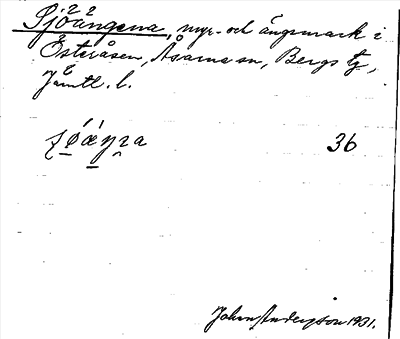 Sjöängena, myr- och ängsmark i
Österåsen, Åsarna sn, Bergs tg,
Jämtl. l.
36
Johan Anderzson 1931.